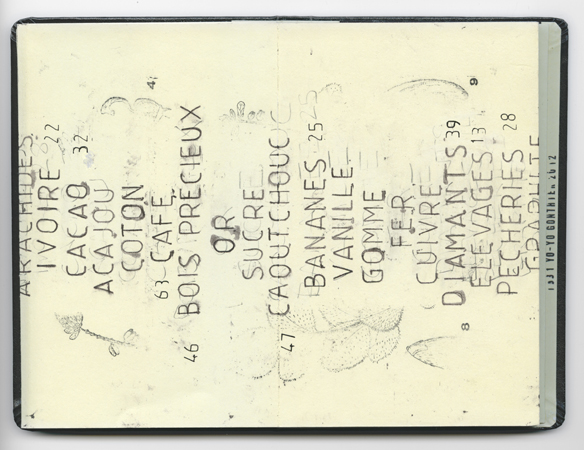 ARACHIDES
IVOIRE 22
CACAO 32
ACAJOU
COTON
4
63 CAFÉ
46 BOIS PRÉCIEUX
OR
SUCRE
CAOUTCHOUC
47
BANANES 25
VANILLE
GOMME
FER
CUIVRE
DIAMANTS 39
8
9
ELEVAGES 13
PECHERIES 28
GRAPHITE
YO-YO GONTHIER 2012